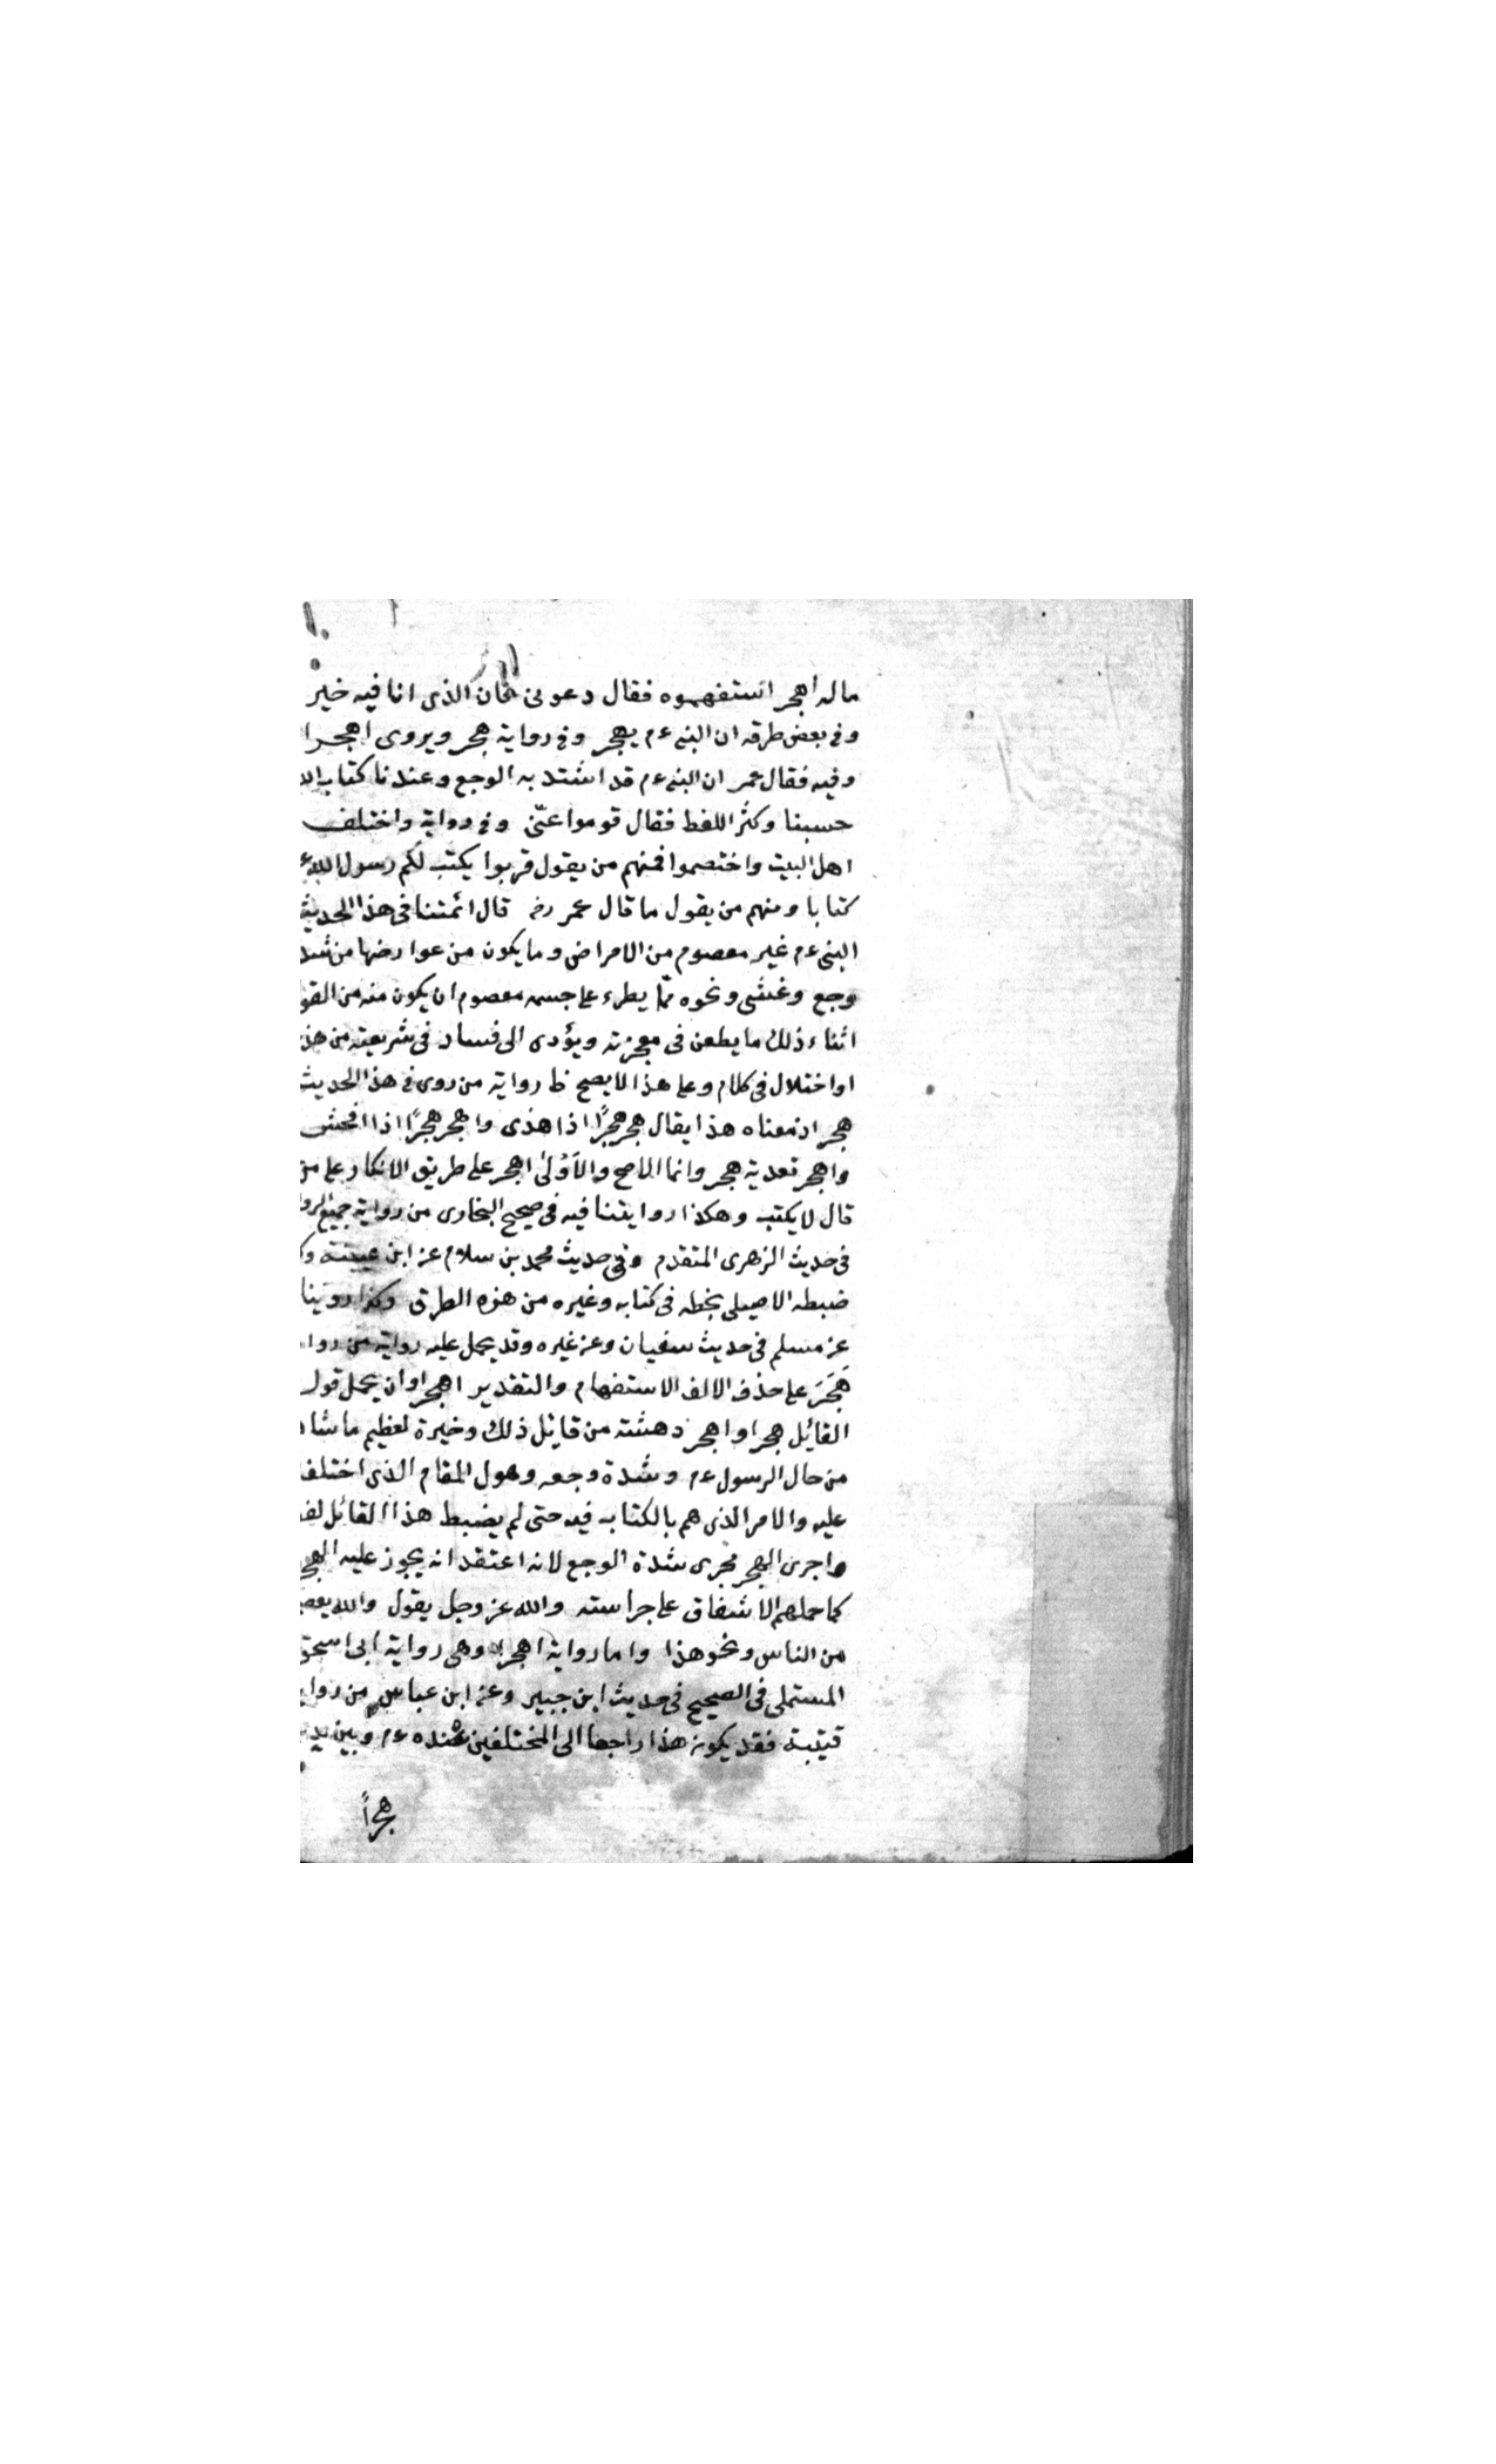 ماله أهجر استفهموه فقال دعونى فان الذى انا فيه خير
وفى بعض طرقه ان النبى ءم يهجر وفى رواية هجر ويروى اهجرا
وفيه فقال عمر ان النبى ءم قد اشتد به الوجع وعندنا كتاب الله
حسبنا وكثر اللغط فقال قوموا عنّى وفى رواية واختلف
اهل البيت واختصموا فمنهم من يقول قربوا يكتب لكم رسول الله ء
كتابا ومنهم من يقول ما قال عمر رضه قال ائمتنا فى هذا الحديث
النبى ءم غير معصوم من الامراض وما يكون من عوارضها من شد
وجع وغشى ونحوه ممّا يطرء على جسمه معصوم ان يكون منه من القو
اثناء ذلك ما يطعن فى معجزته ويؤدى الى فساد فى شريعته من هذ
او اختلال فى كلام وعلى هذا لا يصح ظ رواية من روى فى هذا الحديث
هجر اذ معناه هذا يقال هجر هجرًا اذا هذى واهجر هجرًا اذا افحش
واهجر تعدية هجر وانما الاصح والاَوْلى اهجر على طريق الانكار على من
قال لا يكتب وهكذا روايتنا فيه فى صحيح البخارى من رواية جميع الروا
فى حديث الزهرى المتقدم وفى حديث محمد بن سلام عن ابن عيينة وك
ضبطه الاصيلى بخطه فى كتابه وغيره من هذه الطرق وكذا روينا
عن مسلم فى حديث سفيان وعن غيره وقد يحمل عليه رواية من روا
هَجَرَ على حذف الالف الاستفهام والتقدير اهجر او ان يحمل قول
القائل هجر او اهجر دهشة من قائل ذلك وخيرة لعظيم ما شا
من حال الرسول ءم وشدة وجعه وهول المقام الذى اختلف
عليه والامر الذى هم بالكتابه فيه حتى لم يضبط هذا القائل لف
واجرى الهجر مجرى شدة الوجع لانه اعتقد انه يجوز عليه الهج
كما حملهم الاشفاق على حراسته والله عز وجل يقول والله يعص
من الناس ونحو هذا واما رواية اهجرا وهى رواية ابى اسحق
المستملى فى الصحيح فى حديث ابن جبير وعن ابن عباس من روا
قتيبة فقد يكون هذا راجعا الى المختلفين عنده ءم وبين يد
هجرًا